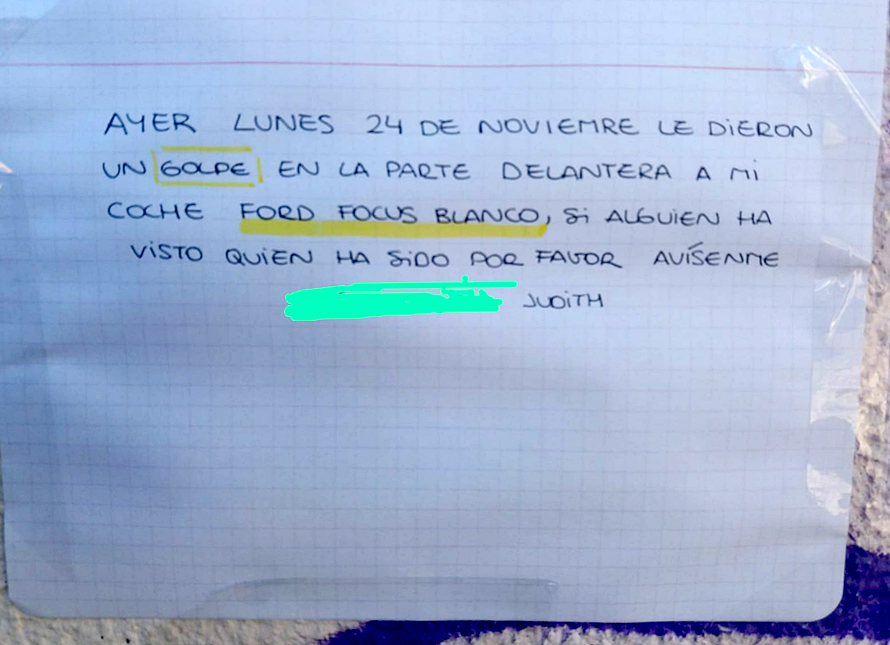 AYER LUNES 24 DE NOVIEMRE LE DIERON
UN GOLPE EN LA PARTE DELANTERA A MI
COCHE FORD FOCUS BLANCO, SI ALGUIEN HA
VISTO QUIEN HA SIDO POR FAVOR AVÍSENME
JUDITH